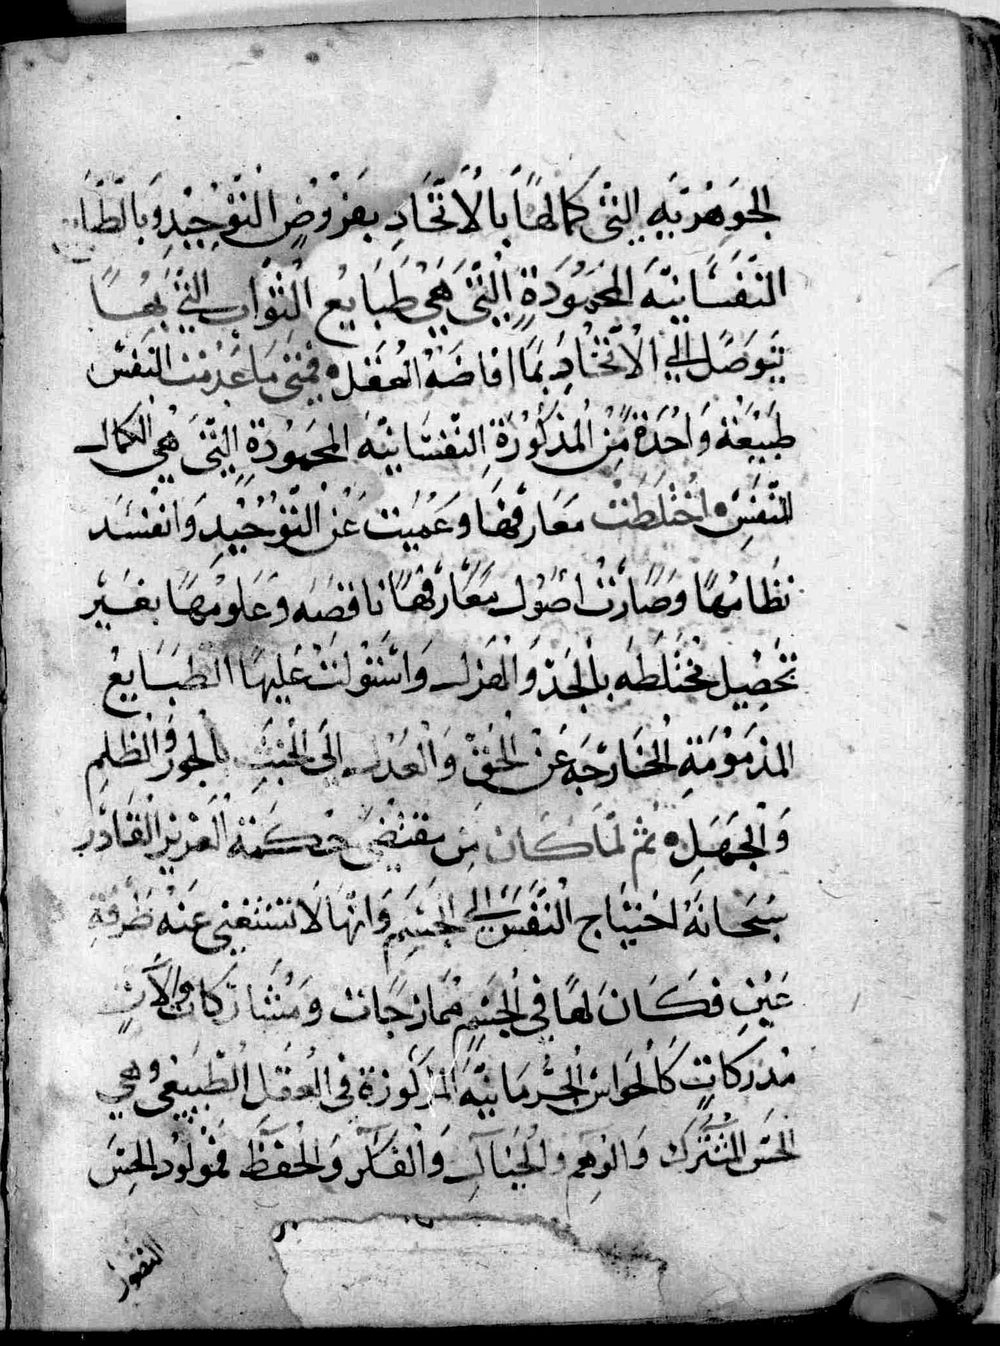 الجَوهَريَّه التّي كمالهَا بالاتّحَادِ بفَروُضِ التَّوْحِيْدِ وَبالطَّبَا
النّفسَانيّه المحَمُودَةِ التّي هَي طَبَايعُ الثوَاب التّي بهَا
يَتوَصَّل الي الاتّحَادِ بمَا افاضَهُ العَقل فمتَي مَا عَدمَت النفسَ
طَبيْعَة وَاحُدَة مِّنُ المذكوُرَة النّفسَانيّه المحَمُودَة التّيَ هي الكمال
للنّفسِ اخْتلَطتْ مَعَارفهَا وعَميَت عَن التّوحُيْدِ وَانفسَد
نظَامهَا وَصَارَت اصُول مَعَارفهَا ناقصَه وعَلومهَا بغَيْر
تحَصِيل مختَلطَه بالجَدّ وَالهَزل وَاسْتَولتْ عَليهَا الطبَايعُ
المذمَوْمَةِ الخَارجَه عَن الحُق وَالعَدْل الَى الخبْثِ بالجور وَالظلمِ
وَالجَهَلِ ثم لمّا كَان مِن مقتضَى حكَمَة العَزيز القَادر
سُبحَانهُ احَتيَاج النَّفسَ الي الجسَمِ وَانّهَا لا تستَغني عَنهُ طَرفةِ
عَيْنٍ فكَان لهَا في الجسَمِ ممَازجَات ومَشَاركَات والاتٍ
مُدركاتٍ كَالحوَاسّ الجُرمَانيّه المذكَورَة في العَقل الطَبيعي وهي
الحسّ المشترَك وَالوهَم والخيَال وَالفكر وَالحفظ فموْلوُد الحِسَ
التصَور